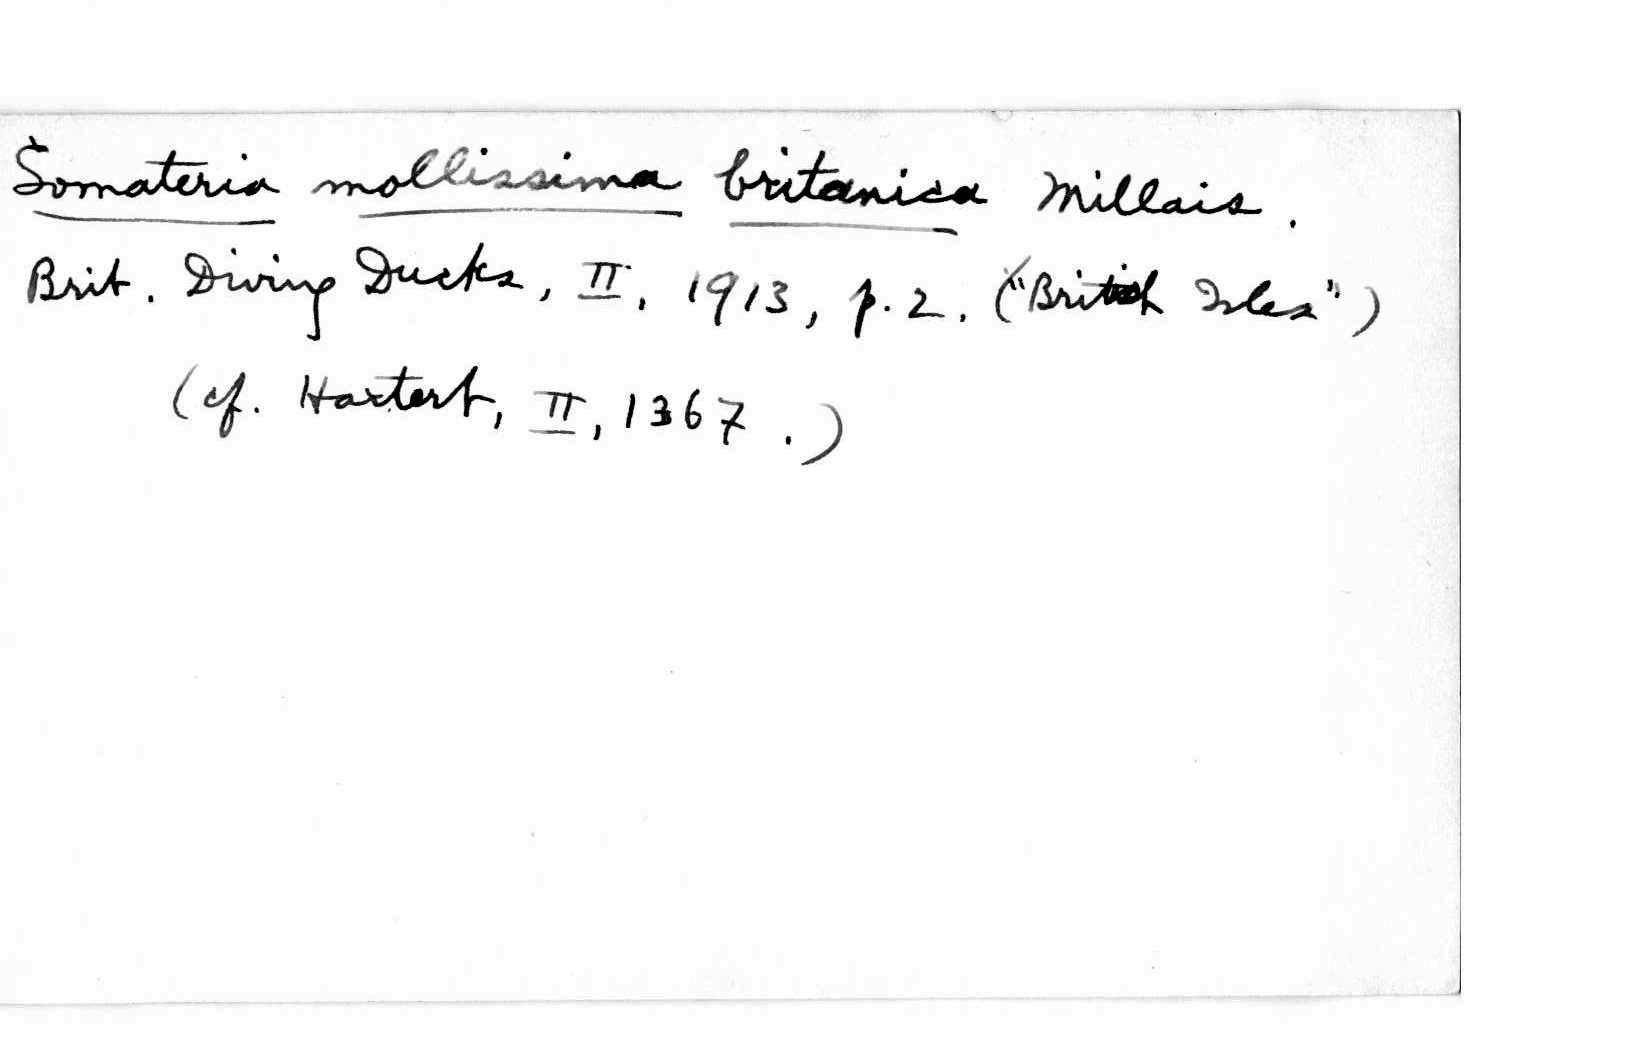 Somateria mollissima britanica Millais.
Brit. Diving Ducks, II, 1913, p. 2. ("British Isles")
(cf. Hartert, II, 1367.)